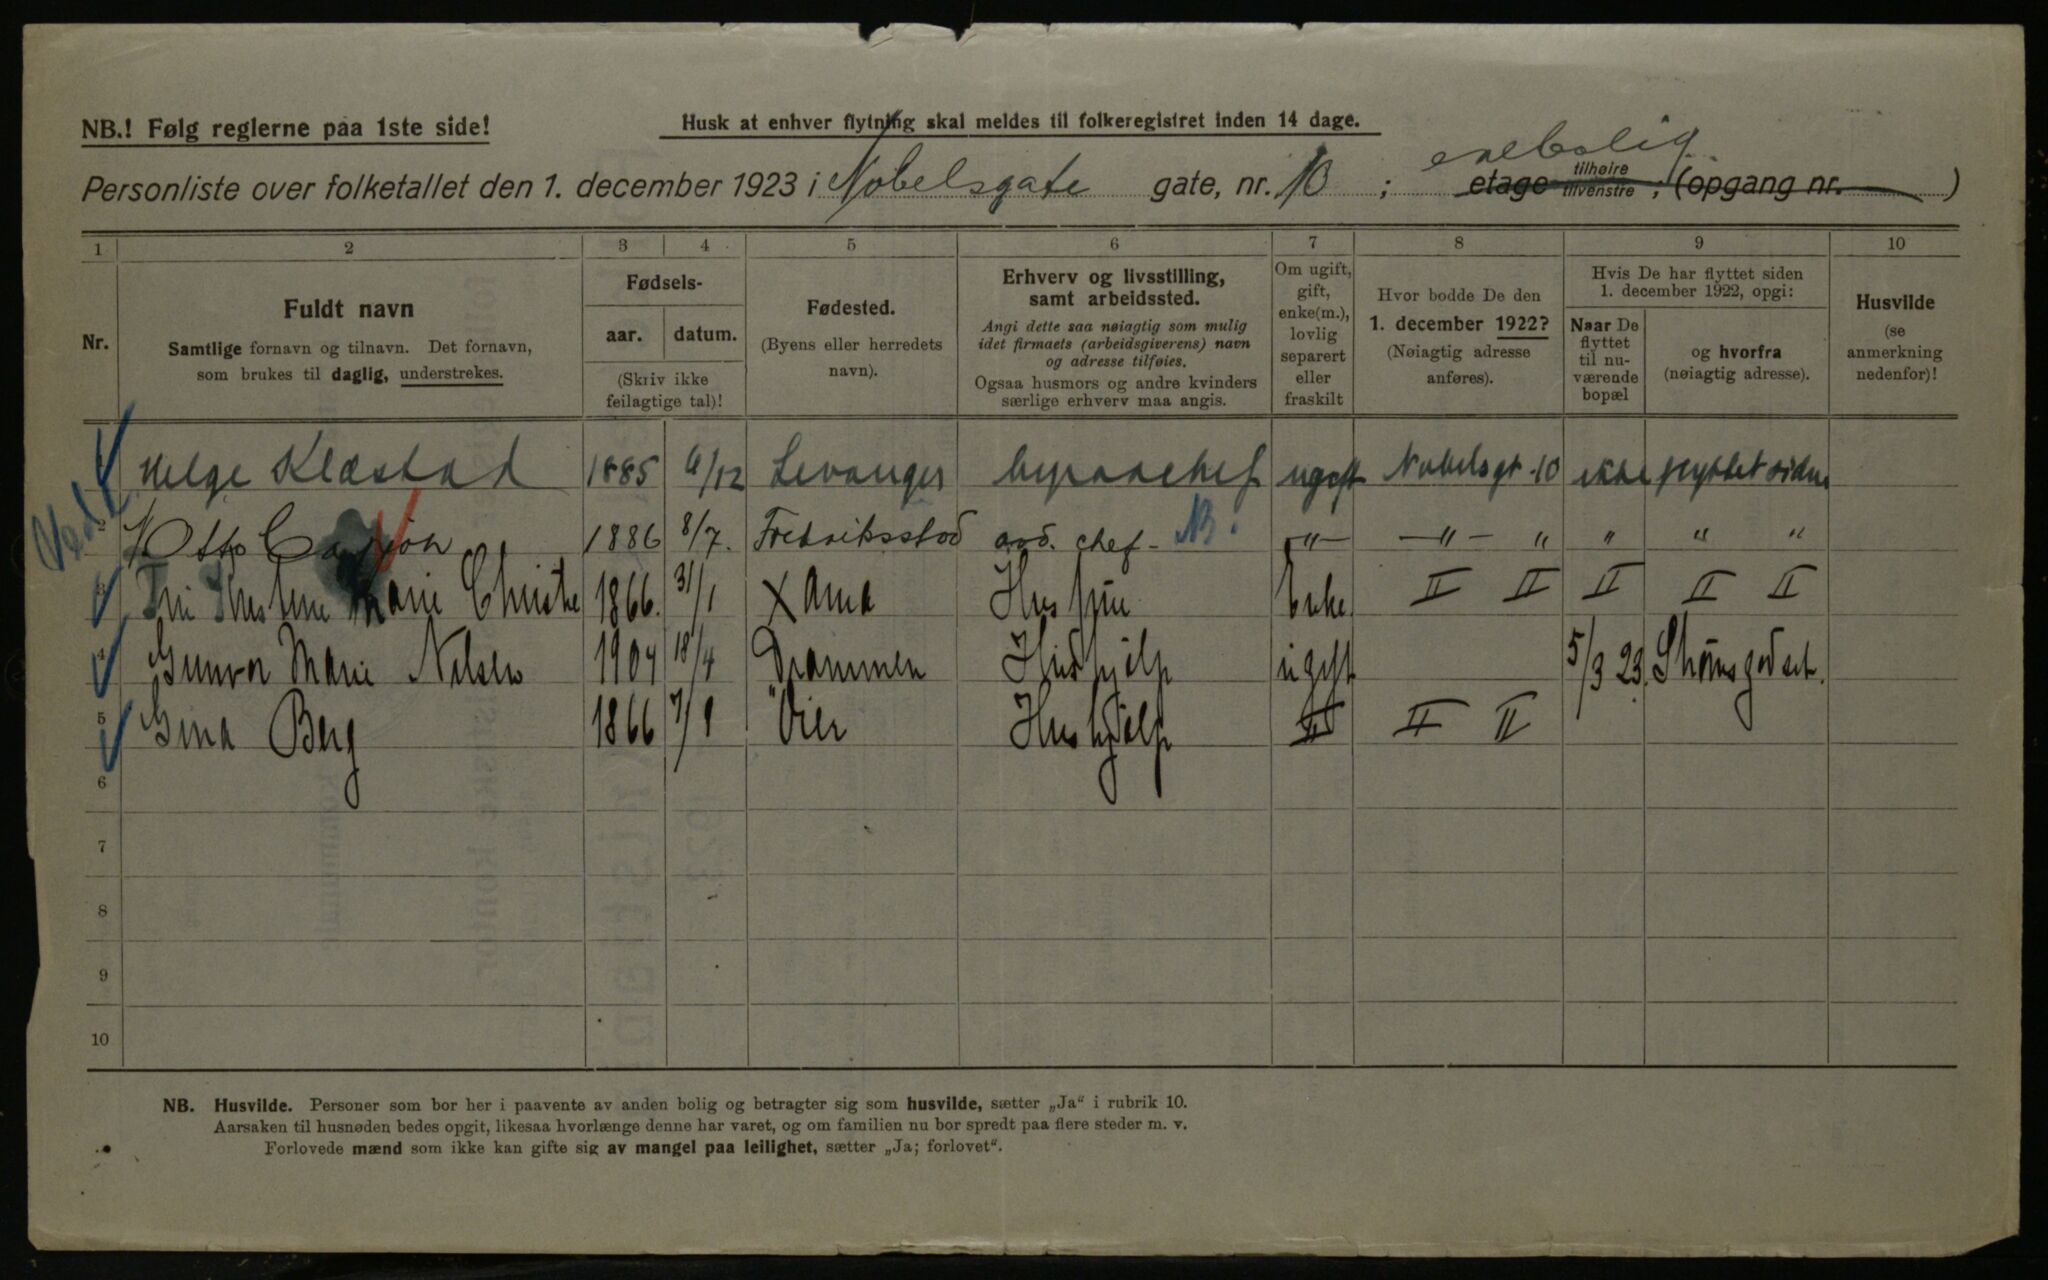 NB.! Følg reglerne paa 1ste side!
Husk at enhver flytning skal meldes til folkeregistret inden 14 dage.
enebolig
Personliste over folketallet den 1. december 1923 i Nobelsgate gate, nr. 10 ; etage tilhøire tilvenstre ; (opgang nr. )
1 2 3 4 5 6 7 8 9 10
Nr.
Fuldt navn
Samtlige fornavn og tilnavn. Det fornavn,
som brukes til daglig, understrekes.
Fødsels-
aar. datum.
(Skriv ikke
feilagtige tal)!
Fødested.
(Byens eller herredets
navn).
Erhverv og livsstilling,
samt arbeidssted.
Angi dette saa nøiagtig som mulig
idet firmaets (arbeidsgiverens) navn
og adresse tilføies.
Ogsaa husmors og andre kvinders
særlige erhverv maa angis.
Om ugift,
gift,
enke(m.),
lovlig
separert
eller
fraskilt
Hvor bodde De den
1. december 1922?
(Nøiagtig adresse
anføres).
Hvis De har flyttet siden
1. december 1922, opgi:
Naar De
flyttet
til nu-
værende
bopæl
og hvorfra
(nøiagtig adresse).
Husvilde
(se
anmerkning
nedenfor)!
Helge Klæstad 1885 6/12 Levanger byraachef ugift Nobelsgt. 10 ikke flyttet siden
2 Otto 1886 8/7. Fredriksstad avd. chef - -„- -„- „ „ „ „
3 Marie Christie 1866. 31/1 Husfrue Enke. II II II II II
4 Gunvor Marie Nilsen 1904 18/4 Drammen Hushjælp ugift 5/3 23. Strömsgodset.
5 Gina Berg 1866 7/9 Öier Hushjælp II II II
6
7
8
9
10
NB. Husvilde. Personer som bor her i paavente av anden bolig og betragter sig som husvilde, sætter „Ja“ i rubrik 10.
Aarsaken til husnøden bedes opgit, likesaa hvorlænge denne har varet, og om familien nu bor spredt paa flere steder m. v.
Forlovede mænd som ikke kan gifte sig av mangel paa leilighet, sætter „Ja; forlovet“.